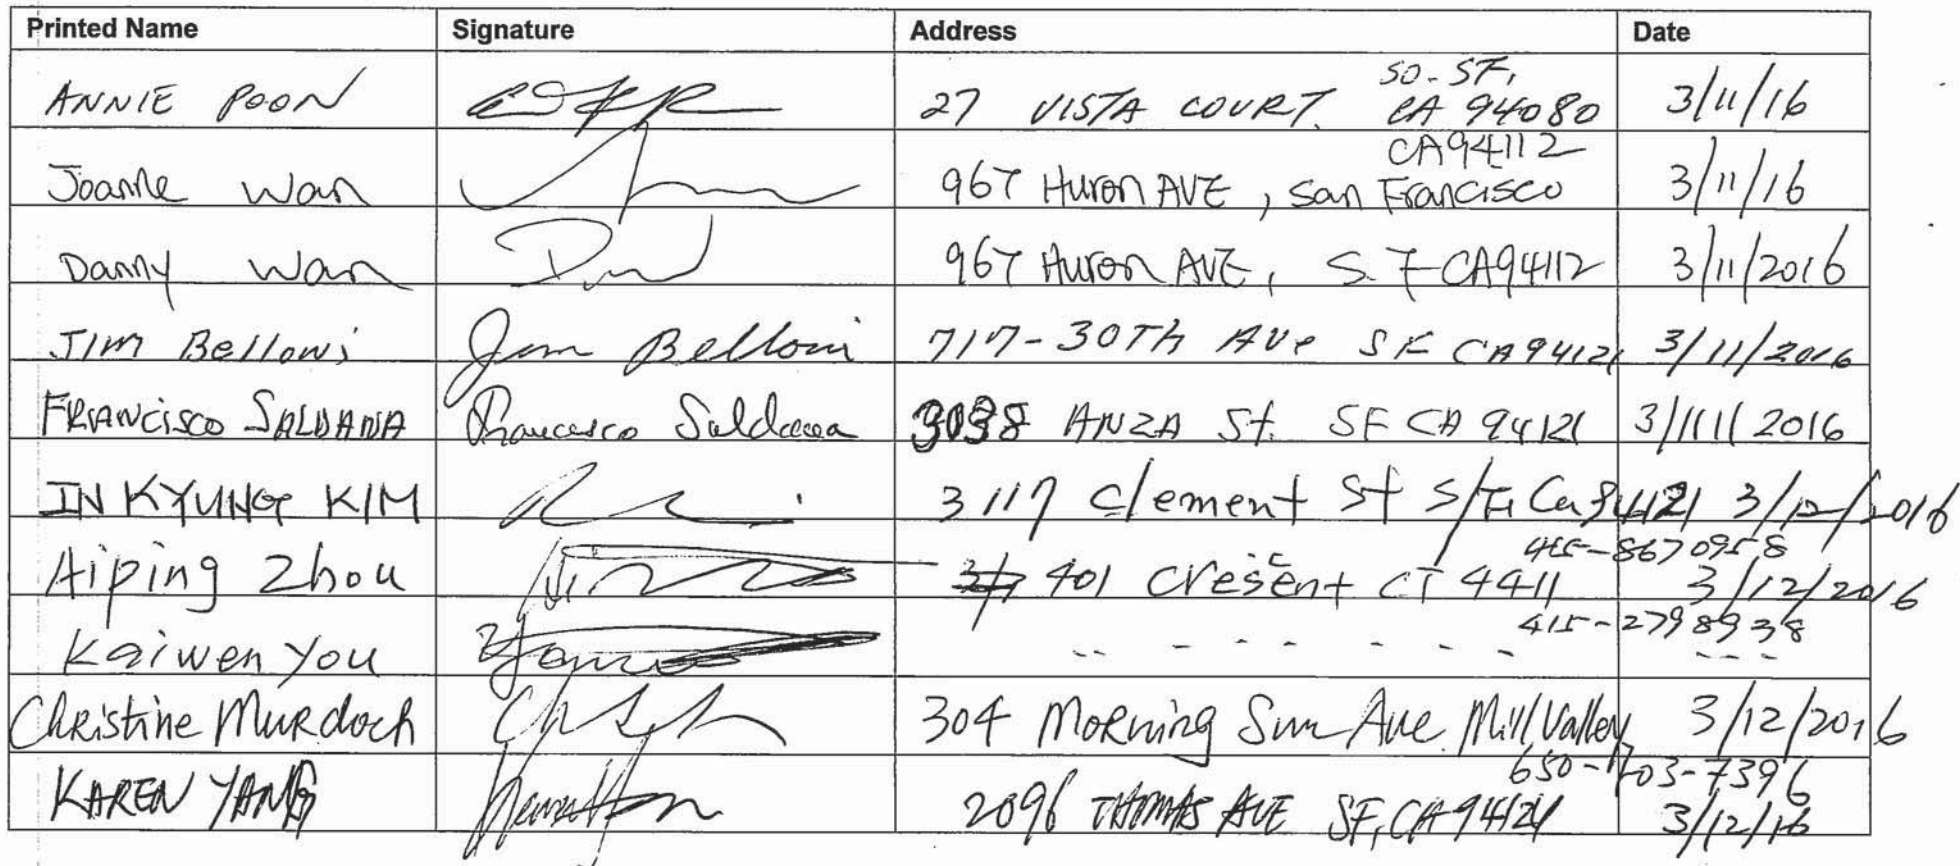 Printed Name Signature Address Date
ANNIE POON 27 VISTA COURT. SO. SF, CA 94080 3/11/16
Joanne Wan 967 Huron AVE, San Francisco CA94112 3/11/16
Danny Wan 967 Huron AVE, S.F CA94112 3/11/2016
JIM Belloni Jim Belloni 717-30Th AVe SF CA94121 3/11/2016
FRANCISCO SALDANA Francisco Saldana 3038 ANZA St. SF CA 94121 3/11/2016
IN KYUNG KIM 3117 Clement St S/F, Ca 94121 3/12/2016
415-8670958
Aiping Zhou 401 Cresent CT 4411 3/12/2016
415-2798938
Kaiwen You -- - - - - - - ---
Christine Murdoch 304 Morning Sun Ave Mill Valley, 3/12/2016
650-703-7396
KAREN YANG 2096 THOMAS AVE SF, CA 94124 3/12/16